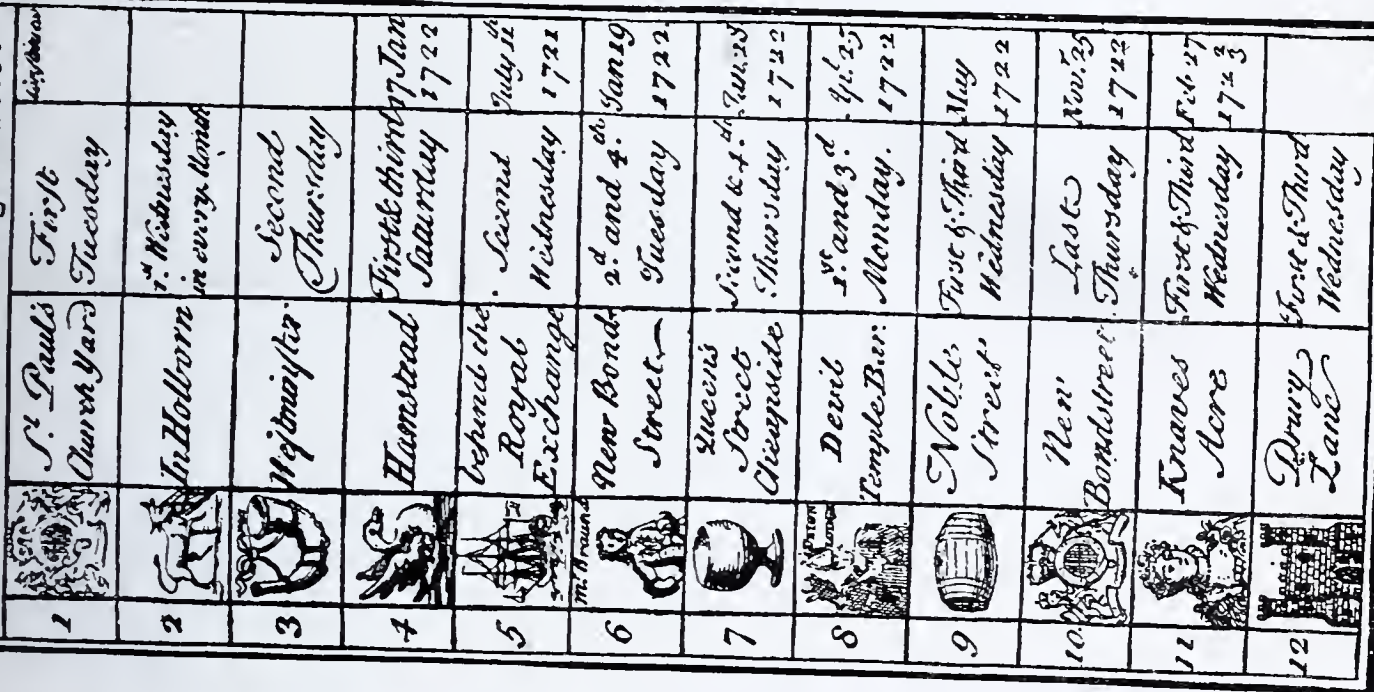 1
St. Paul's
Church Yard
First
Tuesday
2
In Holborn
1st Wednesday
in every Month
3
Westminster
Second
Thursday
4
Hamstead
First & third
Saturday
17 Jan
1722
5
behind the
Royal
Exchange
Second
Wednesday
July 11th
1721
6
m. Braund
New Bond
Street
2.d and 4.th
Tuesday
Jan 19
1722
7
Queen's
Street
Cheapside
Second & 4.th
Thursday
Jan. 28
1722
8
Devil
Temple Barr
1st and 3.d
Monday.
Apl. 25
1722
9
Noble
Street
First & Third
Wednesday
May
1722
10
New
Bondstreet
Last
Thursday
Nov. 25
1722
11
Knaves
Acre
First & Third
Wednesday
Feb. 27
1722/3
12
Drury
Lane
First & Third
Wednesday